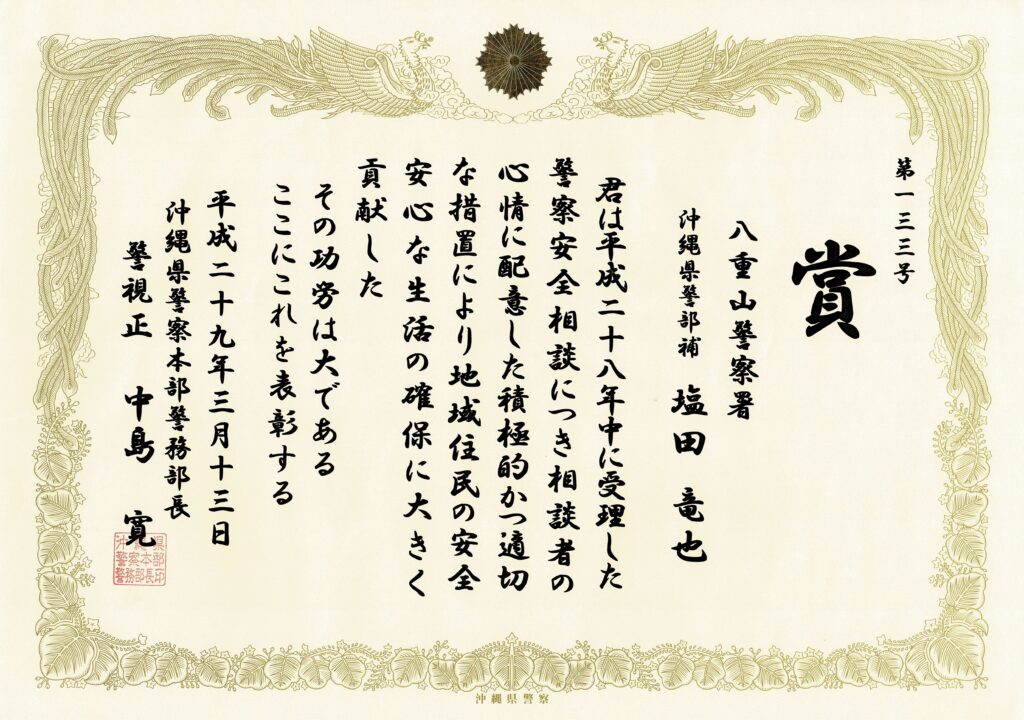 第一三三号
賞
八重山警察署
沖縄県警部補 塩田 竜也
君は平成二十八年中に受理した
警察安全相談につき相談者の
心情に配意した積極的かつ適切
な措置により地域住民の安全
安心な生活の確保に大きく
貢献した
その功労は大である
ここにこれを表彰する
平成二十九年三月十三日
沖縄県警察本部警務部長
警視正 中島 寛
沖縄県警察